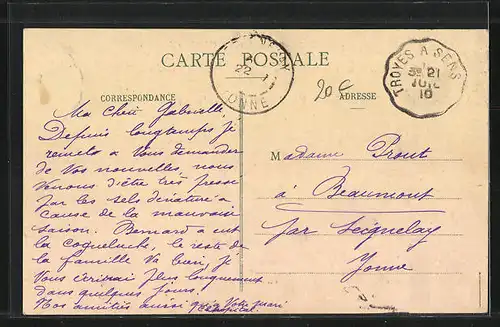 CARTE POSTALE
CORRESPONDANCE
ADRESSE
TROYES A SENS
3E 21
JUIL
10
22
YONNE
20 c
Ma Chère Gabrielle,
Depuis longtemps je
remets a Vous demander
de Vos nouvelles, nous
Venons d'être très pressé
par les sels dénaturé a
Cause de la mauvaise
saison. Bernard a eut
la coqueluche, le reste de
la famille Va bien, je
Vous écrirai plus longuement
dans quelques jours.
Nos amitiés ainsi qu'a Votre mari
Madame Prout
à Beaumont
par Seignelay
Yonne